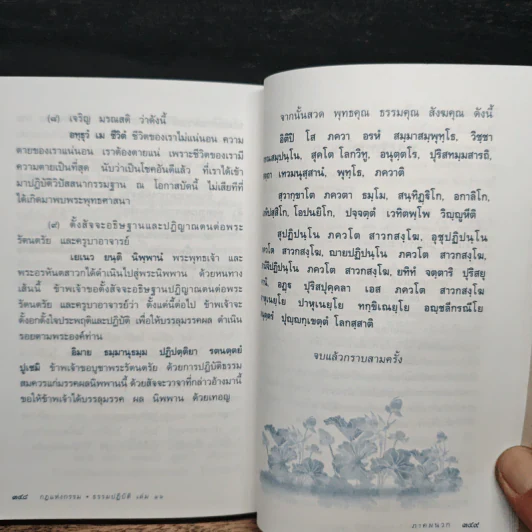 (๘) เจริญ มรณสติ ว่าดังนี้
อทฺธุวํ เม ชีวิตํ ชีวิตของเราไม่แน่นอน ความ
ตายของเราแน่นอน เราต้องตายแน่ เพราะชีวิตของเรามี
ความตายเป็นที่สุด นับว่าเป็นโชคอันดีแล้ว ที่เราได้เข้า
มาปฏิบัติวิปัสสนากรรมฐาน ณ โอกาสบัดนี้ ไม่เสียทีที่
ได้เกิดมาพบพระพุทธศาสนา
(๙) ตั้งสัจจะอธิษฐานและปฏิญาณตนต่อพระ
รัตนตรัย และครูบาอาจารย์
เยเนว ยนฺติ นิพฺพานํ พระพุทธเจ้า และ
พระอรหันตสาวกได้ดำเนินไปสู่พระนิพพาน ด้วยหนทาง
เส้นนี้ ข้าพเจ้าขอตั้งสัจจะอธิษฐานปฏิญาณตนต่อพระ
รัตนตรัยและครูบาอาจารย์ว่า ตั้งแต่นี้ต่อไป ข้าพเจ้าจะ
ตั้งอกตั้งใจประพฤติและปฏิบัติ เพื่อให้บรรลุมรรคผล ดำเนิน
รอยตามพระองค์ท่าน
อิมาย ธมฺมานุธมฺม ปฏิปตฺติยา รตนตฺตยํ
ปูเชมิ ข้าพเจ้าขอบูชาพระรัตนตรัย ด้วยการปฏิบัติธรรม
สมควรแก่มรรคผลนิพพานนี้ ด้วยสัจจะวาจาที่กล่าวอ้างมานี้
ขอให้ข้าพเจ้าได้บรรลุมรรค ผล นิพพาน ด้วยเทอญ
๒๔๘ กฎแห่งกรรม • ธรรมปฏิบัติ เล่ม ๑๑
จากนั้นสวด พุทธคุณ ธรรมคุณ สังฆคุณ ดังนี้
อิติปิ โส ภควา อรหํ สมฺมาสมฺพุทฺโธ, วิชฺชา
รณสมฺปนฺโน, สุคโต โลกวิทู, อนุตฺตโร, ปุริสทมฺมสารถิ,
ถา เทวมนุสฺสานํ, พุทฺโธ, ภควาติ
สฺวากฺขาโต ภควตา ธมฺโม, สนฺทิฏฺฐิโก, อกาลิโก,
หิปสฺสิโก, โอปนยิโก, ปจฺจตฺตํ เวทิตพฺโพ วิญฺญูหีติ
สุปฏิปนฺโน ภควโต สาวกสงฺโฆ, อุชุปฏิปนฺโน
ควโต สาวกสงฺโฆ, ญายปฏิปนฺโน ภควโต สาวกสงฺโฆ,
มีจิปฏิปนฺโน ภควโต สาวกสงฺโฆ, ยทิทํ จตฺตาริ ปุริสยุ
นิ, อฏฺฐ ปุริสปุคฺคลา เอส ภควโต สาวกสงฺโฆ
หุเนยฺโย ปาหุเนยฺโย ทกฺขิเณยฺโย อญฺชลีกรณีโย
นุตฺตรํ ปุญฺญกฺเขตฺตํ โลกสฺสาติ
จบแล้วกราบสามครั้ง
ภาคผนวก ๒๔๙